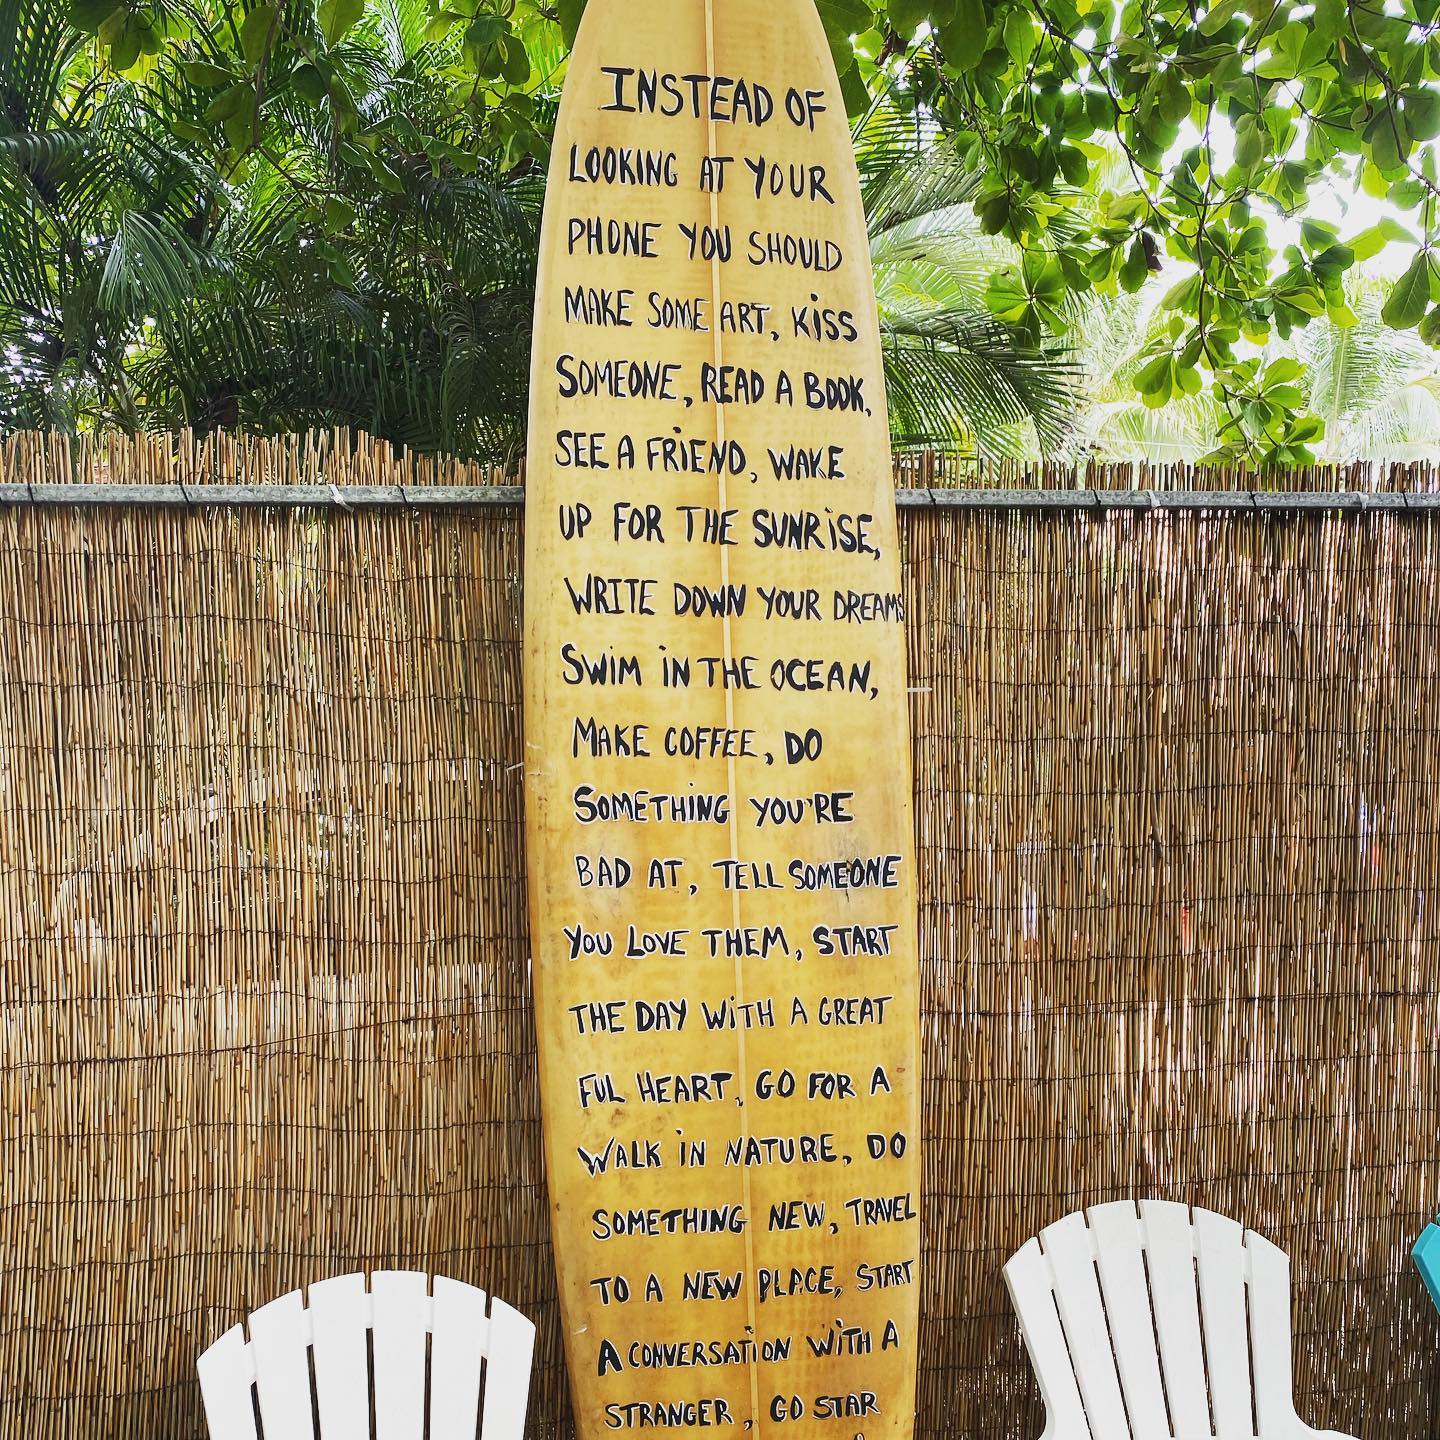 INSTEAD OF
LOOKING AT YOUR
PHONE YOU SHOULD
MAKE SOME ART, KISS
SOMEONE, READ A BOOK,
SEE A FRIEND, WAKE
UP FOR THE SUNRISE,
WRITE DOWN YOUR DREAMS
SWIM IN THE OCEAN,
MAKE COFFEE, DO
SOMETHING YOU'RE
BAD AT, TELL SOMEONE
YOU LOVE THEM, START
THE DAY WITH A GREAT
FUL HEART, GO FOR A
WALK IN NATURE, DO
SOMETHING NEW, TRAVEL
TO A NEW PLACE, START
A CONVERSATION WITH A
STRANGER, GO STAR